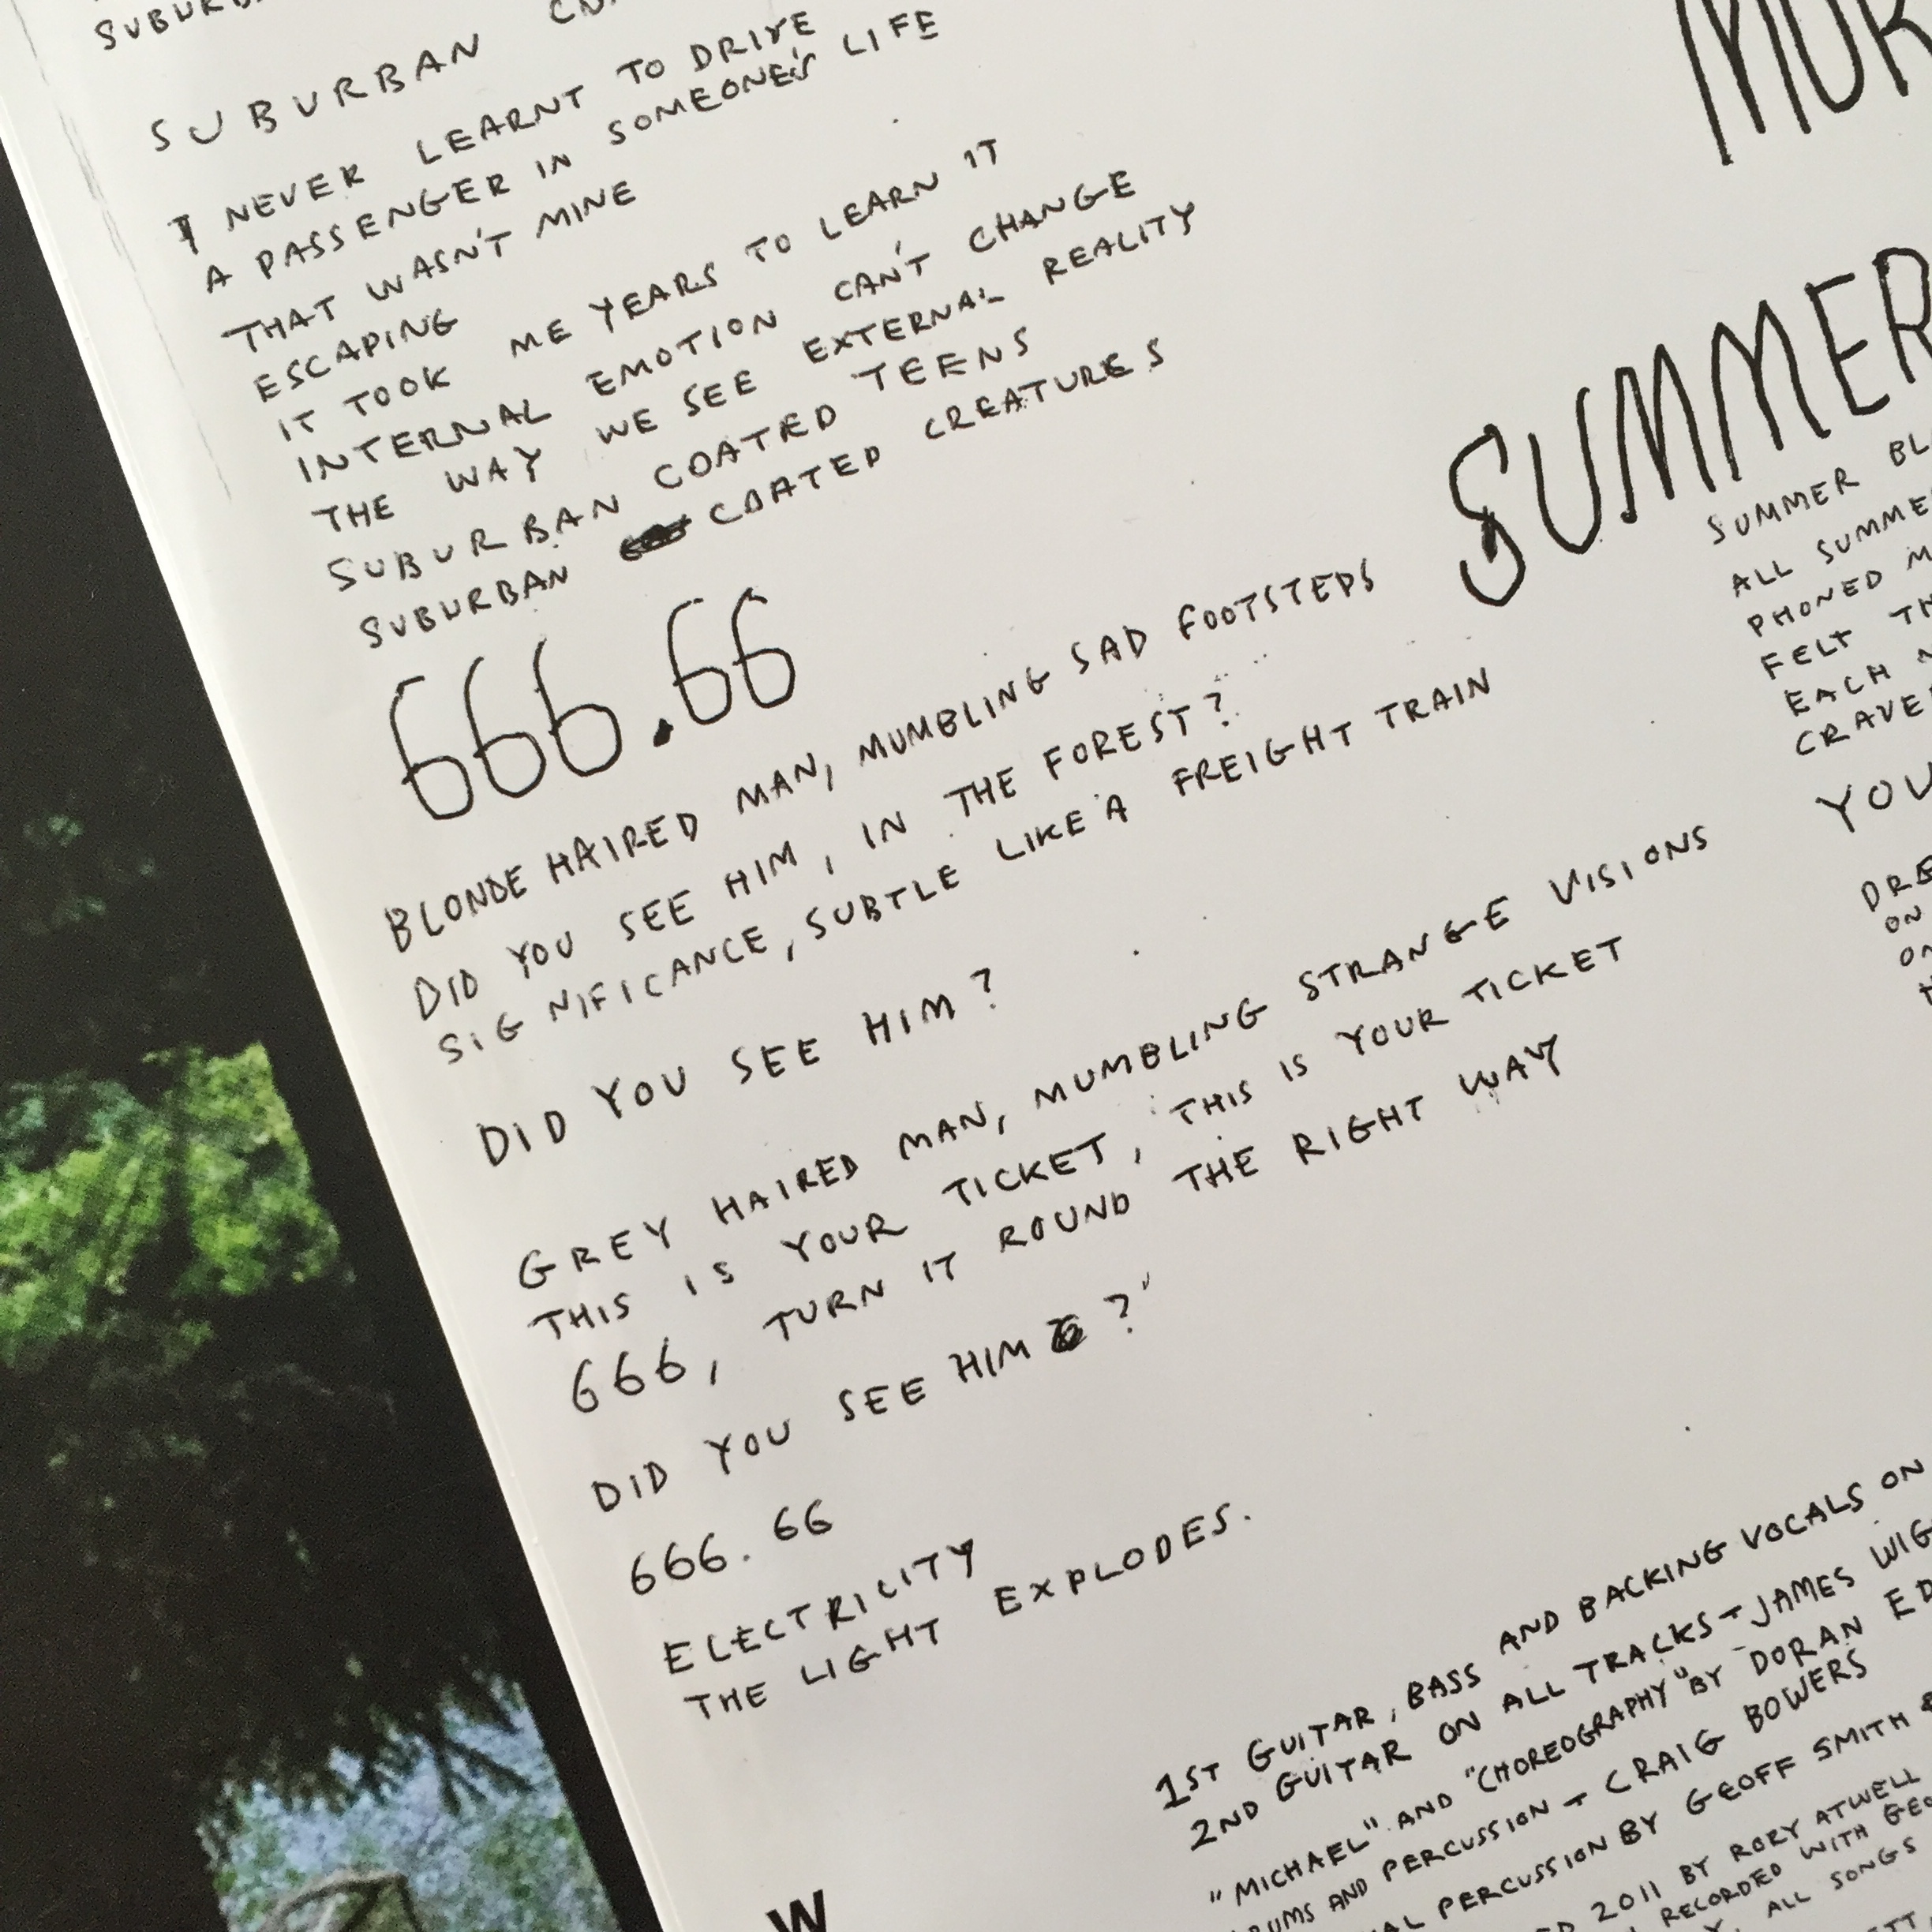 SUBURBAN
I NEVER LEARNT TO DRIVE
A PASSENGER IN SOMEONE'S LIFE
THAT WASN'T MINE
ESCAPING
IT TOOK ME YEARS TO LEARN IT
INTERNAL EMOTION CAN'T CHANGE
THE WAY WE SEE EXTERNAL REALITY
SUBURBAN COATED TEENS
SUBURBAN COATED CREATURES
666.66
BLONDE HAIRED MAN, MUMBLING SAD FOOTSTEPS
DID YOU SEE HIM, IN THE FOREST?
SIGNIFICANCE, SUBTLE LIKE A FREIGHT TRAIN
DID YOU SEE HIM?
GREY HAIRED MAN, MUMBLING STRANGE VISIONS
THIS IS YOUR TICKET, THIS IS YOUR TICKET
666, TURN IT ROUND THE RIGHT WAY
DID YOU SEE HIM ?
666.66
ELECTRICITY
THE LIGHT EXPLODES.
SUMMER
SUMMER
ALL
PHONED
FELT
EACH
YOU
ON
1ST GUITAR, BASS AND BACKING VOCALS ON
2ND GUITAR ON ALL TRACKS - JAMES
"MICHAEL" AND "CHOREOGRAPHY" BY DORAN
AND PERCUSSION - CRAIG BOWERS
PERCUSSION BY GEOFF SMITH &
2011 BY RORY ATWELL
RECORDED WITH
ALL SONGS
W